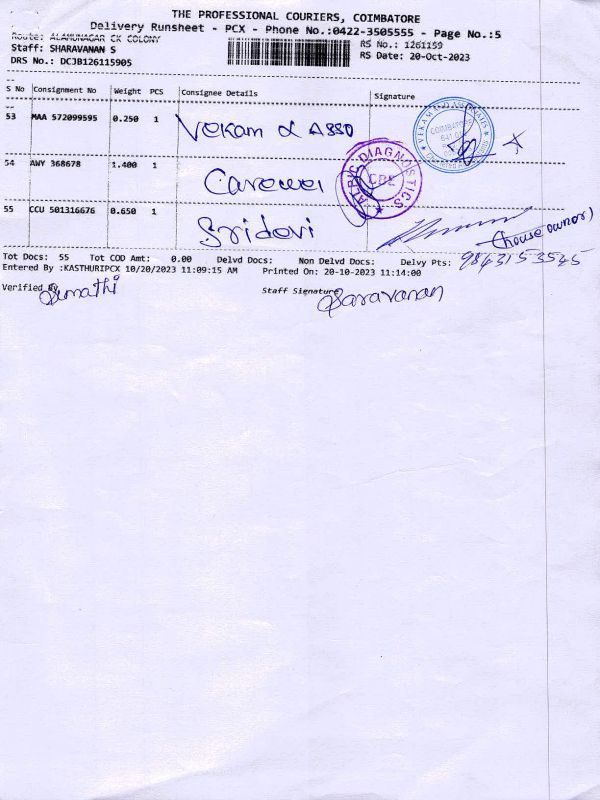 THE PROFESSIONAL COURIERS, COIMBATORE
Delivery Runsheet - PCX - Phone No.:0422-3505555 - Page No.:5
Route: ALAMUNAGAR CK COLONY RS No.: 1261159
Staff: SHARAVANAN S RS Date: 20-Oct-2023
DRS No.: DCJB126115905
S No Consignment No Weight PCS Consignee Details Signature
53 MAA 572099595 0.250 1 Vekam & ASSO
COIMBATORE
54 AWY 368678 1.400 1 Carewei
DIAGNOSTICS
CBE
55 CCU 501316676 0.650 1 Sridevi
(house owner)
Tot Docs: 55 Tot COD Amt: 0.00 Delvd Docs: Non Delvd Docs: Delvy Pts: 9843153545
Entered By :KASTHURIPCX 10/20/2023 11:09:15 AM Printed On: 20-10-2023 11:14:00
Verified By Sumathi Staff Signature Saravanan